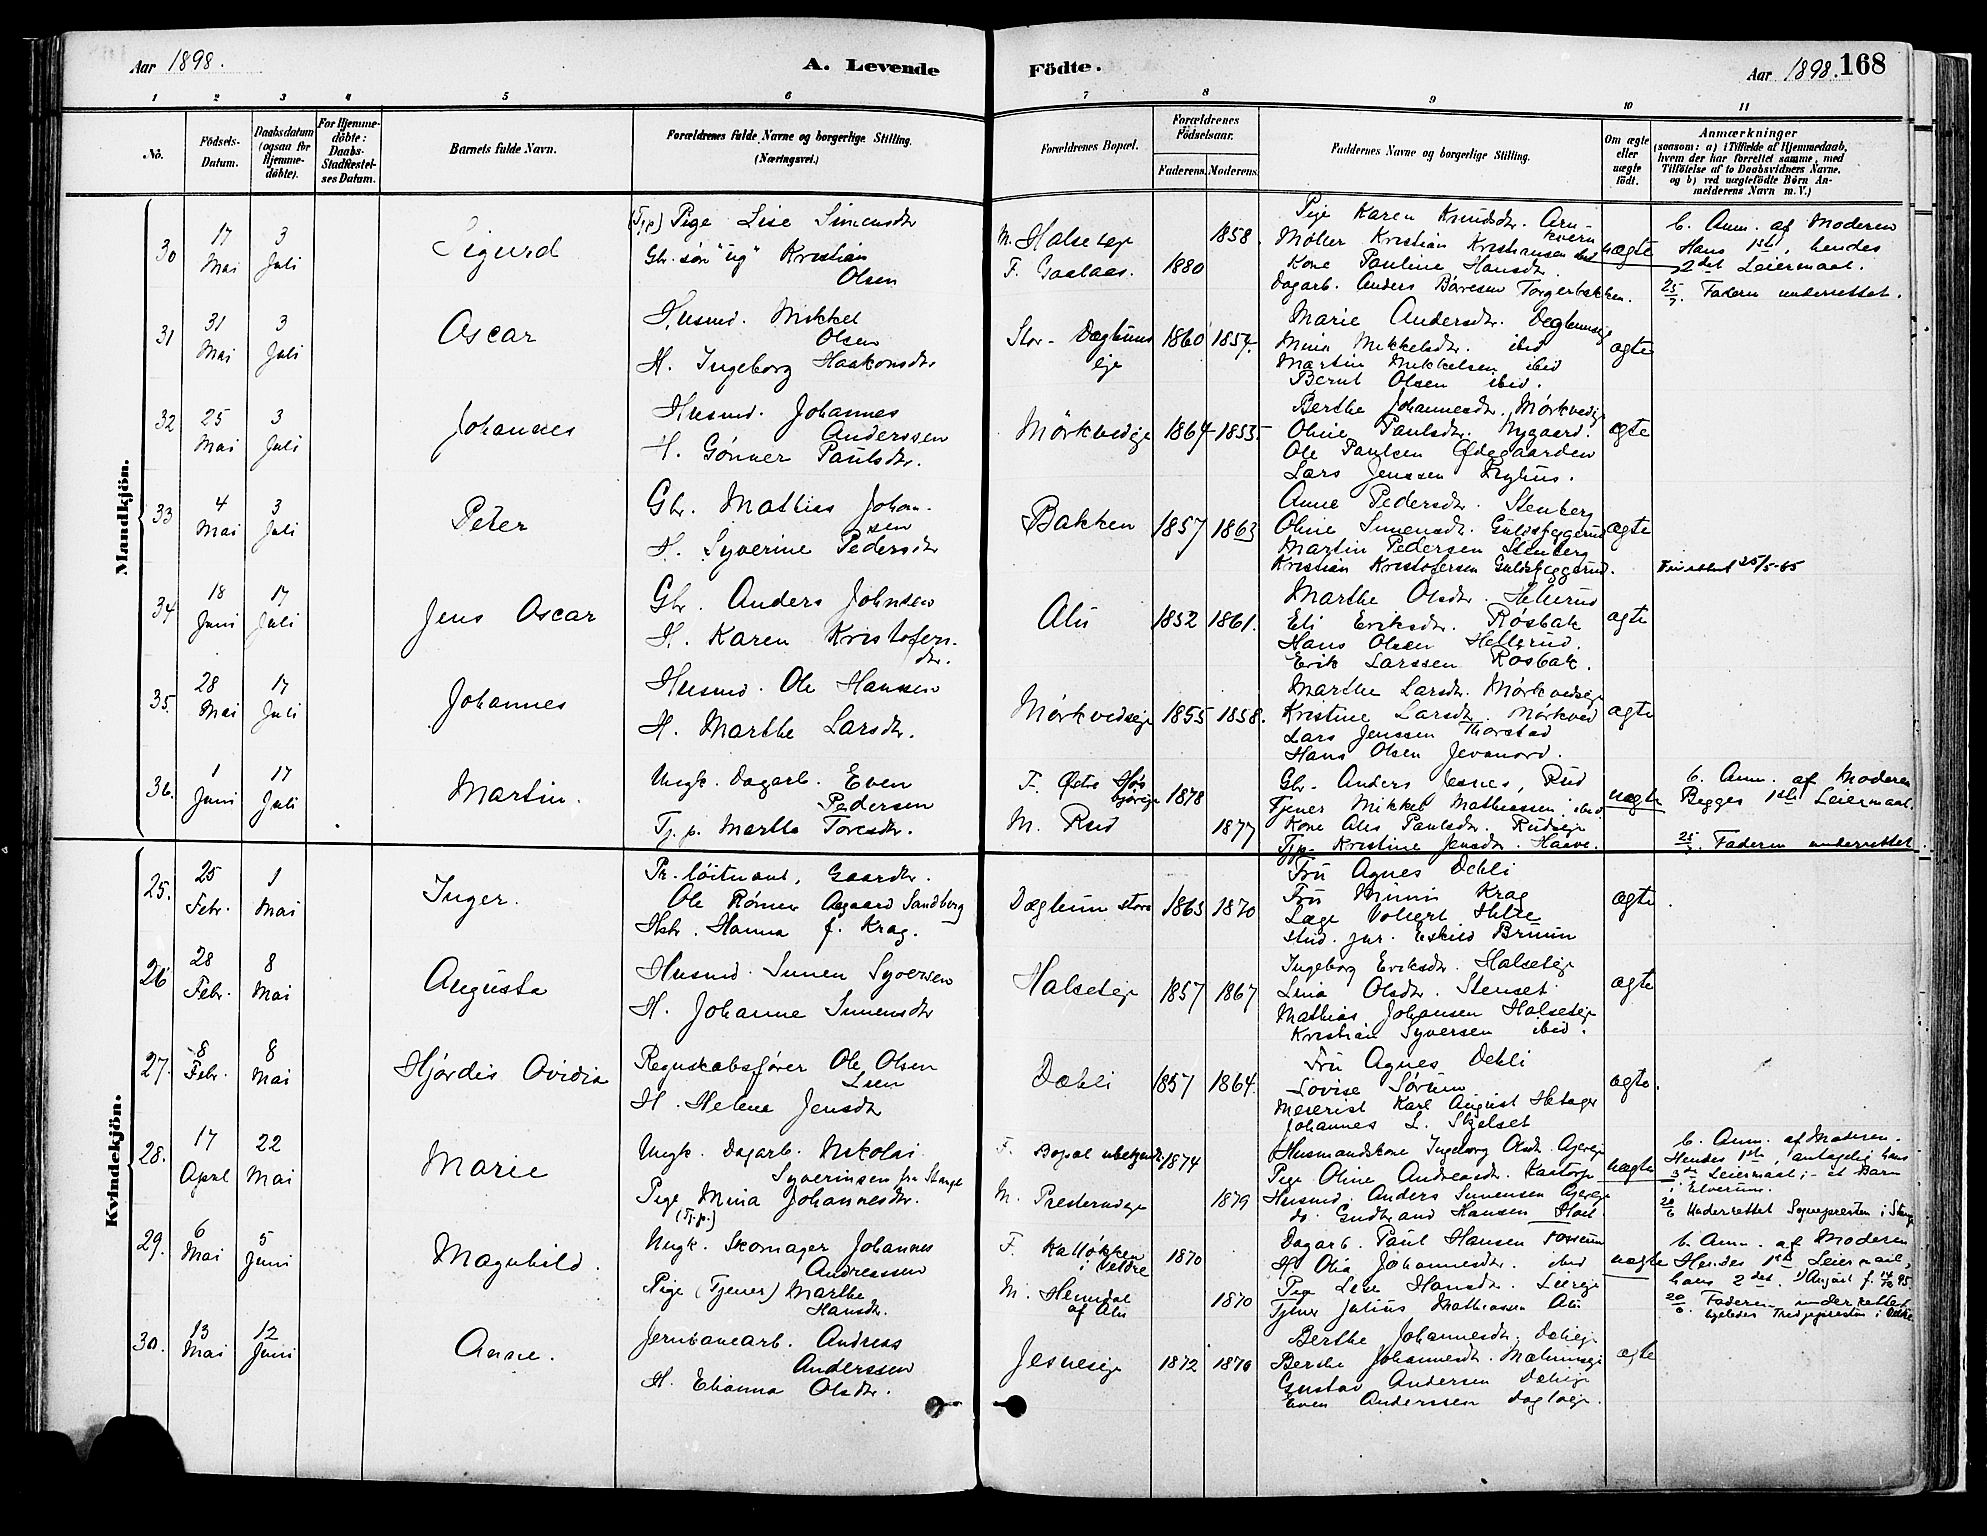 Aar 1898.
A. Levende
Födte.
Aar 1898.
168
1 2 3 4 5 6 7 8 9 10 11
No.
Födsels-Datum.
Daabsdatum (ogsaa for Hjemme-döbte).
For Hjemme-döbte: Daabs-Stadfæstel-ses Datum.
Barnets fulde Navn.
Forældrenes fulde Navne og borgerlige Stilling.
(Næringsvei.)
Forældrenes Bopæl.
Forældrenes Födselsaar.
Faderens. Moderens.
Faddernes Navne og borgerlige Stilling.
Om ægte eller uægte födt.
Anmærkninger
(saasom: a) i Tilfælde af Hjemmedaab,
hvem der har forrettet samme, med
Tilföielse af to Daabsvidners Navne,
og b) ved uægtefödte Börn An-
melderens Navn m. V.)
Mandkjön.
30 17 Mai 3 Juli Sigurd
(Tjp) Pige Lise Simensdtr
Gbr. søn "ug" Kristian
Olsen
M. Halseteie 1858.
F. Gaalaas. 1880
Pige Karen Knudsdtr. Arn-
kvern
Møller Kristian Kristiansen ibid
Kone Pauline Hansdtr.
Dagarb. Anders Børresen Torgerbakken.
uægte
b. Anm. af Moderen
Hans 1ste, hendes
2det Leiermaal.
25/7. Faderen underrettet.
31 31 Mai 3 Juli Oscar
Husmd. Mikkel
Olsen
H. Ingeborg Haakonsdtr
Stor-Dæhlins
eje
1860 1854.
Marie Andersdtr.
Mina Mikkelsdtr. ibid
Martin Mikkelsen ibid
Bernt Olsen ibid.
ægte
32 25 Mai 3 Juli Johannes
Husmd. Johannes
Anderssen
H. Gønner Paulsdtr.
Mørkvedeje 1864 1855.
Berthe Johannesdtr. Mørkvedeje
Oline Paulsdtr. Nygaard.
Ole Paulsen Ødegaarden
Lars Jenssen Nyhus.
ægte
33 4 Mai 3 Juli Peter
Gbr. Mathias Johan-
sen
H. Syverine Pedersdtr
Bakken 1857 1863
Anne Pedersdtr. Stenberg
Oline Simensdtr. Guldskjeggerud
Martin Pedersen Stenberg
Kristian Kristofersen Guldskjeggerud.
ægte
25/5-65
34 18 Juni 17 Juli Jens Oscar
Gbr. Anders Johnsen
H. Karen Kristofers-
dtr.
Alu 1852 1861.
Marthe Olsdtr. Hellerud
Eli Eriksdtr. Røsbak
Hans Olsen Hellerud.
Erik Larssen Røsbak.
ægte
35. 28 Mai 17 Juli Johannes
Husmd. Ole Hansen
H. Marthe Larsdtr.
Mørkvedseje 1855 1858.
Marthe Larsdtr. Mørkvedseje
Kristine Larsdtr. Mørkved
Lars Jenssen Thorstad
Hans Olsen Jevanord.
ægte
36. 1 Juni 17 Juli Martin.
Ungk. Dagarb. Even
Pedersen
Tj. p. Marthe Toresdtr.
F. Østre 1878
M. Rud 1877
Gbr. Anders Rud
Tjener Mikkel Mathiassen ibid
Kone Alis Paulsdtr. Rudseje
Tjp. Kristine Jensdtr.
uægte
b. Anm. af Moderen
Begges 1ste Leiermaal.
25/7. Faderen underrettet
Kvindekjön.
25. 25 Febr. 1 Mai Inger.
Pr. løitnant, Gaardbr.
Ole Rømer Aagaard Sandberg
Hstr. Hanna f. Krag.
Dæhlin store 1865 1870
Fru Agnes Dehli
Fru Mimi Krag
Læge Volkert
stud. jur. Eskild Bruun
ægte.
26 28 Febr. 8 Mai Augusta
Husmd. Simen Syversen
H. Johanne Simensdtr
Halseteje 1857 1867
Ingeborg Eriksdtr. Halseteje
Lina Olsdtr. Stenset
Mathias Johansen Halseteje
Kristian Syversen ibid.
ægte
27. 8 Febr. 8 Mai Hjørdis Ovidia
Regnskabsfører Ole Olsen
Lien
H. Helene Jensdtr
Dæhli 1857 1864.
Fru Agnes Dehli
Lovise Sørum
Meierist Karl August
Johannes L. Skjelset
ægte.
28. 17 April 22 Mai Marie
Ungk. Dagarb. Nikolai
Syverinsen fra Stange
Pige Mina Johannesdtr.
(Tj.p.)
F. Bopæl ubekjendt 1874
M. Presterudeje 1879
Husmandskone Ingeborg Olsdtr.
Pige Oline Andreasdtr. Kastorp
Husmd. Anders Simensen
do. Gudbrand Hansen
uægte
b. Anm. af Moderen.
Hendes 1ste, antagelig hans
3die Leiermaal; - et Barn
i Elverum.
20/6 Underrettet Sognepresten i Stange
29. 6 Mai 5 Juni Magnhild.
Ungk. Skomager Johannes
Andreassen
Pige (Tjener) Marthe
Hansdtr.
F. Kalløkken
i Veldre
1870
M. Hemdal
af Alu
1870
Dagarb. Paul Hansen Fossum
H. Olia Johannesdtr. ibid
Pige Lise Hansdtr.
Tjener Julius Mathiassen Alu
uægte
b. Anm. af Moderen
Hendes 1ste Leiermaal,
hans 2det.
20/6. Faderen underrettet
30. 13 Mai 12 Juni Anne.
Jernbanearb. Andreas
Anderssen
H. Elianna Olsdtr.
Jesneseje 1872 1870
Berthe Johannesdtr. Dæhlieje
Berthe Johannesdtr.
Gustav Andersen Dæhlieje
Even Anderssen
ægte